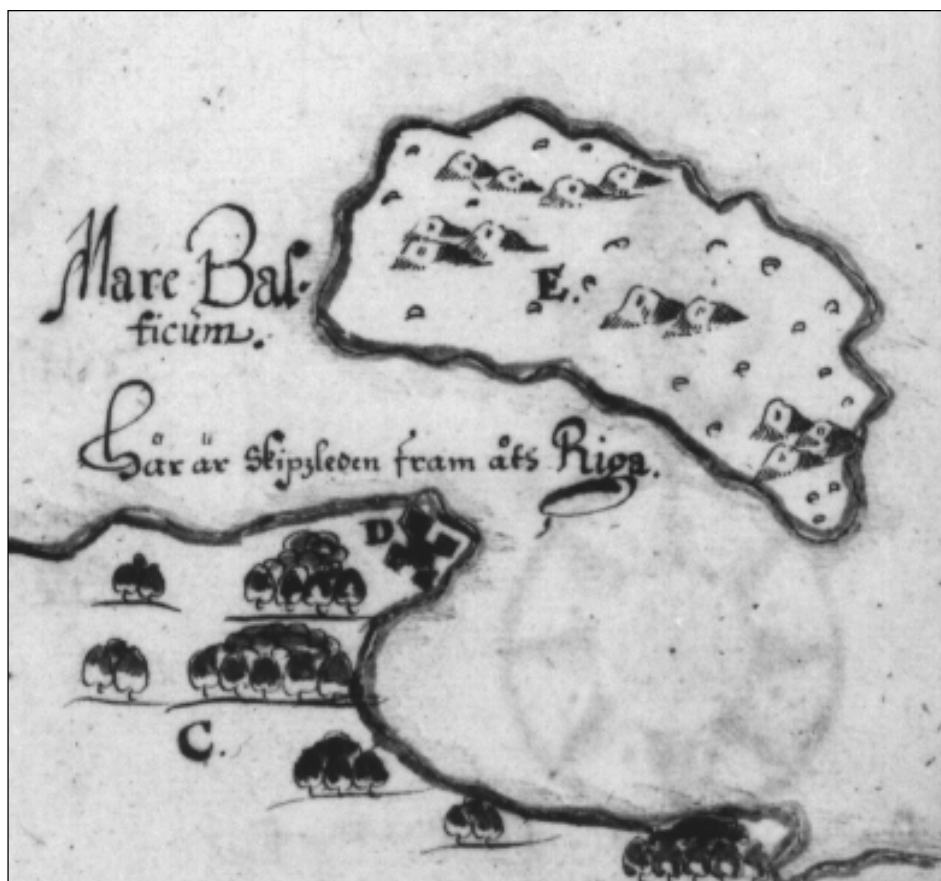 Mare Bal-
ticüm.
Här är Skipzleden fram åts Riga.
E.
D
C.